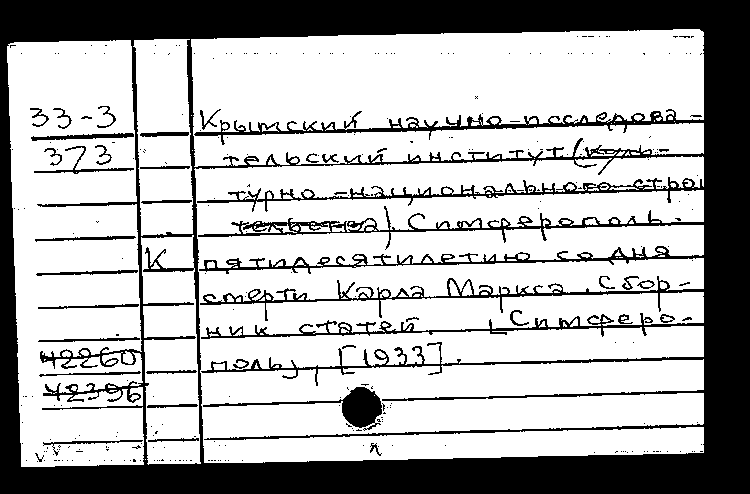 33-3
373
Крымский научно-исследова-
тельский институт (куль-
турно-национального строи
тельства). Симферополь.
К пятидесятилетию со дня
смерти Карла Маркса. Сбор-
ник статей. [Симферо-
поль], [1933].
42260
42396